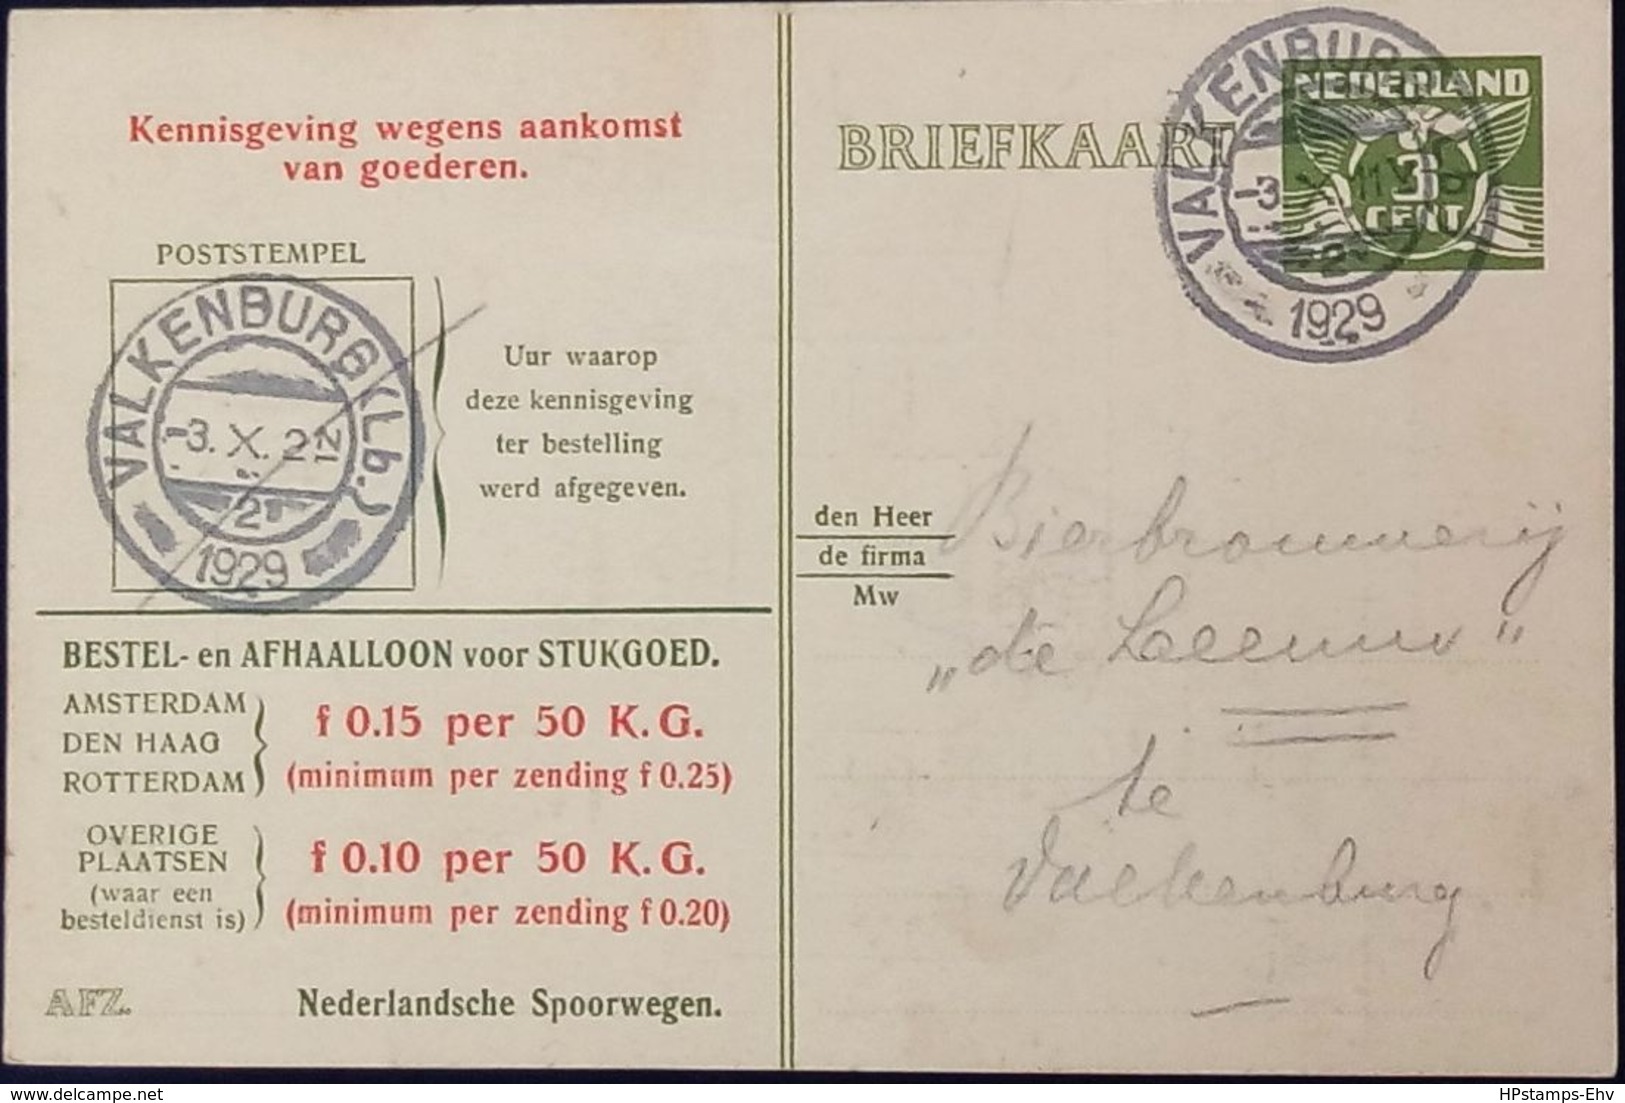 Kennisgeving wegens aankomst
van goederen.
POSTSTEMPEL
VALKENBURG (Lb.)
-3. X. 2 12
2
1929
Uur waarop
deze kennisgeving
ter bestelling
werd afgegeven.
BESTEL- en AFHAALLOON voor STUKGOED.
AMSTERDAM
DEN HAAG
ROTTERDAM
f 0.15 per 50 K.G.
(minimum per zending f 0.25)
OVERIGE
PLAATSEN
(waar een
besteldienst is)
f 0.10 per 50 K.G.
(minimum per zending f 0.20)
AFZ.
Nederlandsche Spoorwegen.
BRIEFKAART
NEDERLAND
3
CENT
VALKENBURG
-3. X. 11 V
2
1929
den Heer
de firma
Mw
Bierbrouwerij
„de Leeuw"
te
Valkenburg
HPstamps-Ehv